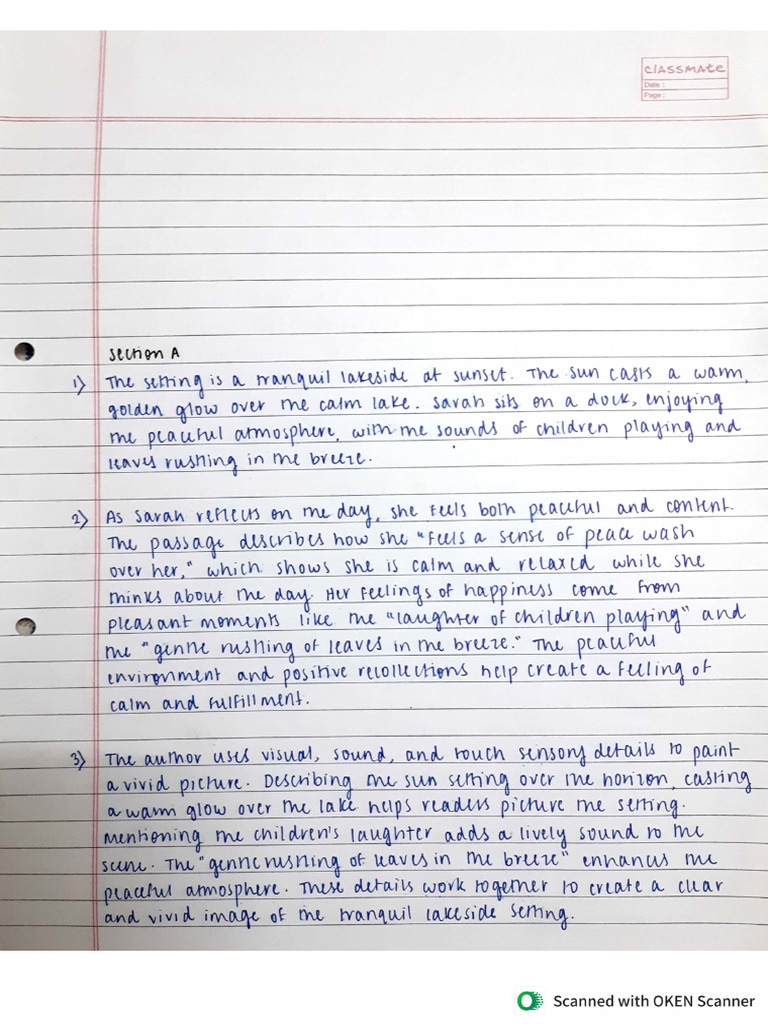 classmate
Date :
Page :
Section A
1) The setting is a tranquil lakeside at sunset. The sun casts a warm,
golden glow over the calm lake. Sarah sits on a dock, enjoying
the peaceful atmosphere, with the sounds of children playing and
leaves rustling in the breeze.
2) As Sarah reflects on the day, she feels both peaceful and content.
The passage describes how she "feels a sense of peace wash
over her," which shows she is calm and relaxed while she
thinks about the day. Her feelings of happiness come from
pleasant moments like the "laughter of children playing" and
the "gentle rustling of leaves in the breeze." The peaceful
environment and positive recollections help create a feeling of
calm and fulfillment.
3) The author uses visual, sound, and touch sensory details to paint
a vivid picture. Describing the sun setting over the horizon, casting
a warm glow over the lake helps readers picture the setting.
Mentioning the children's laughter adds a lively sound to the
scene. The "gentle rustling of leaves in the breeze" enhances the
peaceful atmosphere. These details work together to create a clear
and vivid image of the tranquil lakeside setting.
Scanned with OKEN Scanner